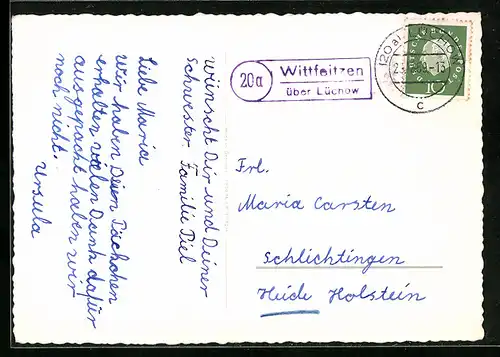 wünscht Dir und Deiner
Schwester Familie Piel
Liebe Maria
Wir haben Dein Päckchen
erhalten vielen Dank dafür
ausgepackt haben wir
noch nicht.
Ursula
20a
Wittfeitzen
über Lüchow
(20a)
c
10
Frl.
Maria Carsten
Schlichtingen
Heide Holstein